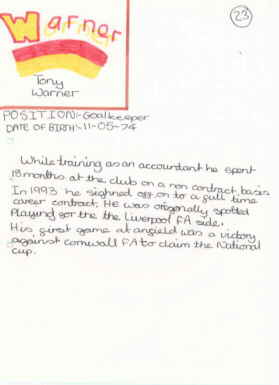 23
Warner
Tony
Warner
POSITION:- Goalkeeper
DATE OF BIRTH:- 11-05-74
While training as an accountant he spent
18 months at the club on a non contract basis
In 1993 he sighned off on to a full time
career contract. HE was origonally spotted
Playing gor the the Liverpool FA side.
His girst game at angield was a victory
against cornwall FA to claim the National
cup.